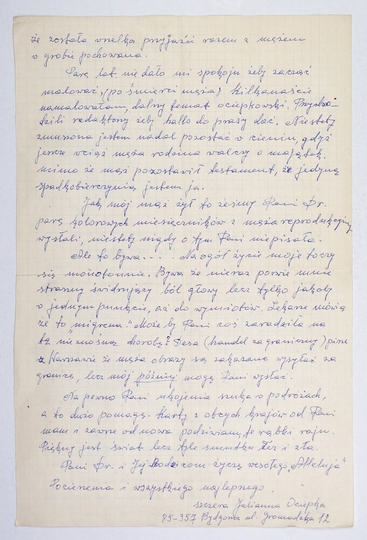 że została wielka przyjaźń razem z mężem
o grobie pochowana.
Parę lat nie dało mi spokoju żeby zacząć
malować, (po śmierci męża) kilkanaście
namalowałam, dalszy temat ociepkowski. Przycho-
dzili redaktorzy żeby hallo do prasy dać. Niestety
zmuszona jestem nadal pozostać w cieniu, gdyż
jeszcze wciąż męża rodzina walczy o majątek,
mimo że mąż pozostawił testament, że jedyną
spadkobierczynią jestem ja.
Jak mój mąż żył to żeśmy Pani Dr.
parę kolorowych miesięczników z męża reprodukcjami
wysłali, niestety nigdy o tym Pani nie pisała.
Ale to bywa... Na ogół życie moje toczy
się monotonnie. Bywa że nieraz porwie mnie
straszny świdrujący ból głowy lecz tylko jakoby
o jednym punkcie, aż do wymiotów. Lekarze mówią
że to migrena. Może by Pani coś zaradziła na
tą nieznośną chorobę? Desa (handel zagraniczny) pisze
z Warszawie że męża obrazy są zakazane wysyłać za
granicę, lecz mój później mogę Pani wysłać.
Na pewno Pani ukojenia szuka o podróżach,
a to dużo pomaga. Karty z obcych krajów od Pani
mam i zawsze od nowa podziwiam, te rąbki raju.
Piękny jest świat lecz tyle smutku łez i zła.
Pani Dr. i Jej Rodzicom życzę wesołego „Alleluja"
Pocieszenia i wszystkiego najlepszego.
szczera Julianna Ociepka
85-357 Bydgoszcz ul. Grunwaldzka 12